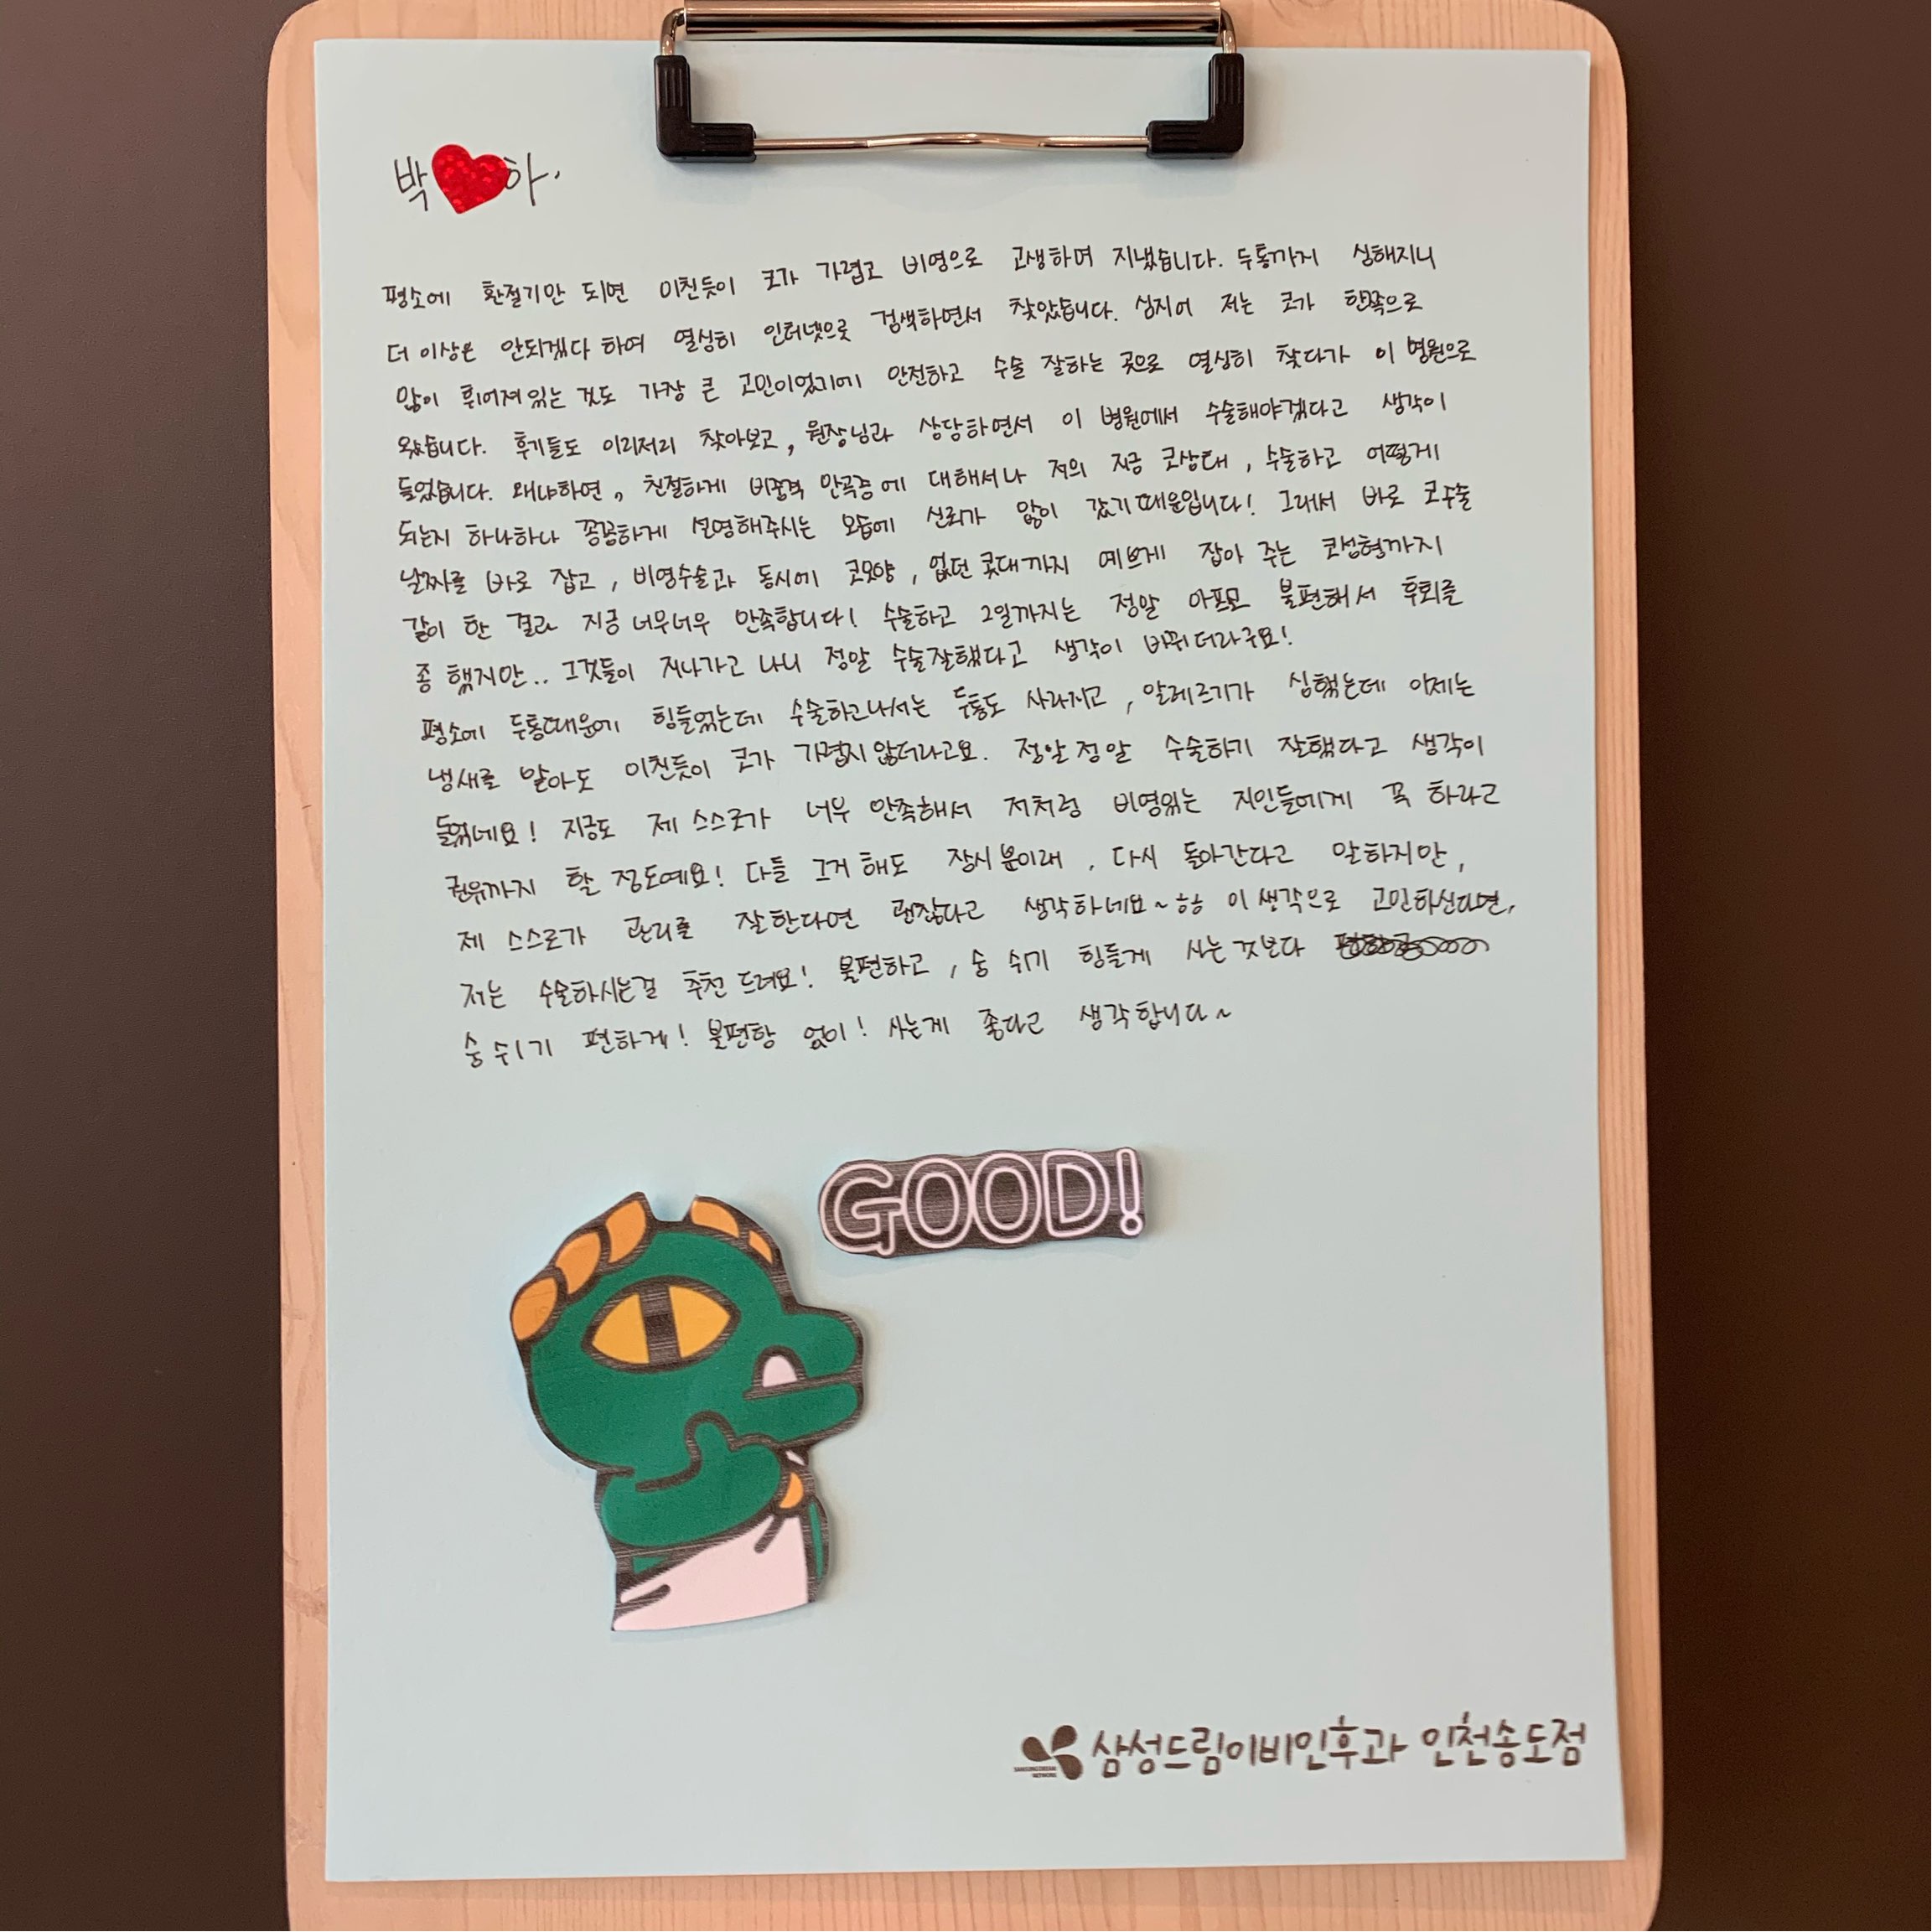 박 하.
평소에 환절기만 되면 미친듯이 코가 가렵고 비염으로 고생하며 지냈습니다. 두통까지 심해지니
더 이상은 안되겠다 하여 열심히 인터넷으로 검색하면서 찾았습니다. 심지어 저는 코가 한쪽으로
많이 휘어져 있는 것도 가장 큰 고민이었기에 안전하고 수술 잘하는 곳으로 열심히 찾다가 이 병원으로
왔습니다. 후기들도 이리저리 찾아보고, 원장님과 상담하면서 이 병원에서 수술해야겠다고 생각이
들었습니다. 왜냐하면, 친절하게 비중격 만곡증에 대해서나 저의 지금 코상태, 수술하고 어떻게
되는지 하나하나 꼼꼼하게 설명해주시는 모습에 신뢰가 많이 갔기 때문입니다! 그래서 바로 코수술
날짜를 바로 잡고, 비염수술과 동시에 코모양, 없던 콧대까지 예쁘게 잡아 주는 코성형까지
같이 한 결과 지금 너무너무 만족합니다! 수술하고 2일까지는 정말 아프고 불편해서 후회를
좀 했지만.. 그것들이 지나가고 나니 정말 수술잘했다고 생각이 바뀌더라구요!
평소에 두통때문에 힘들었는데 수술하고나서는 두통도 사라지고, 알레르기가 심했는데 이제는
냄새를 맡아도 미친듯이 코가 가렵지 않더라고요. 정말정말 수술하기 잘했다고 생각이
들었네요! 지금도 제 스스로가 너무 만족해서 저처럼 비염있는 지인들에게 꼭 하라고
권유까지 할 정도예요! 다들 그거 해도 잠시 뿐이래, 다시 돌아간다고 말하지만,
제 스스로가 관리를 잘한다면 괜찮다고 생각하네요~ㅎㅎ 이 생각으로 고민하신다면,
저는 수술하시는걸 추천 드려요! 불편하고, 숨 쉬기 힘들게 사는것보다
숨 쉬기 편하게! 불편함 없이! 사는게 좋다고 생각합니다~
GOOD!
삼성드림이비인후과 인천송도점